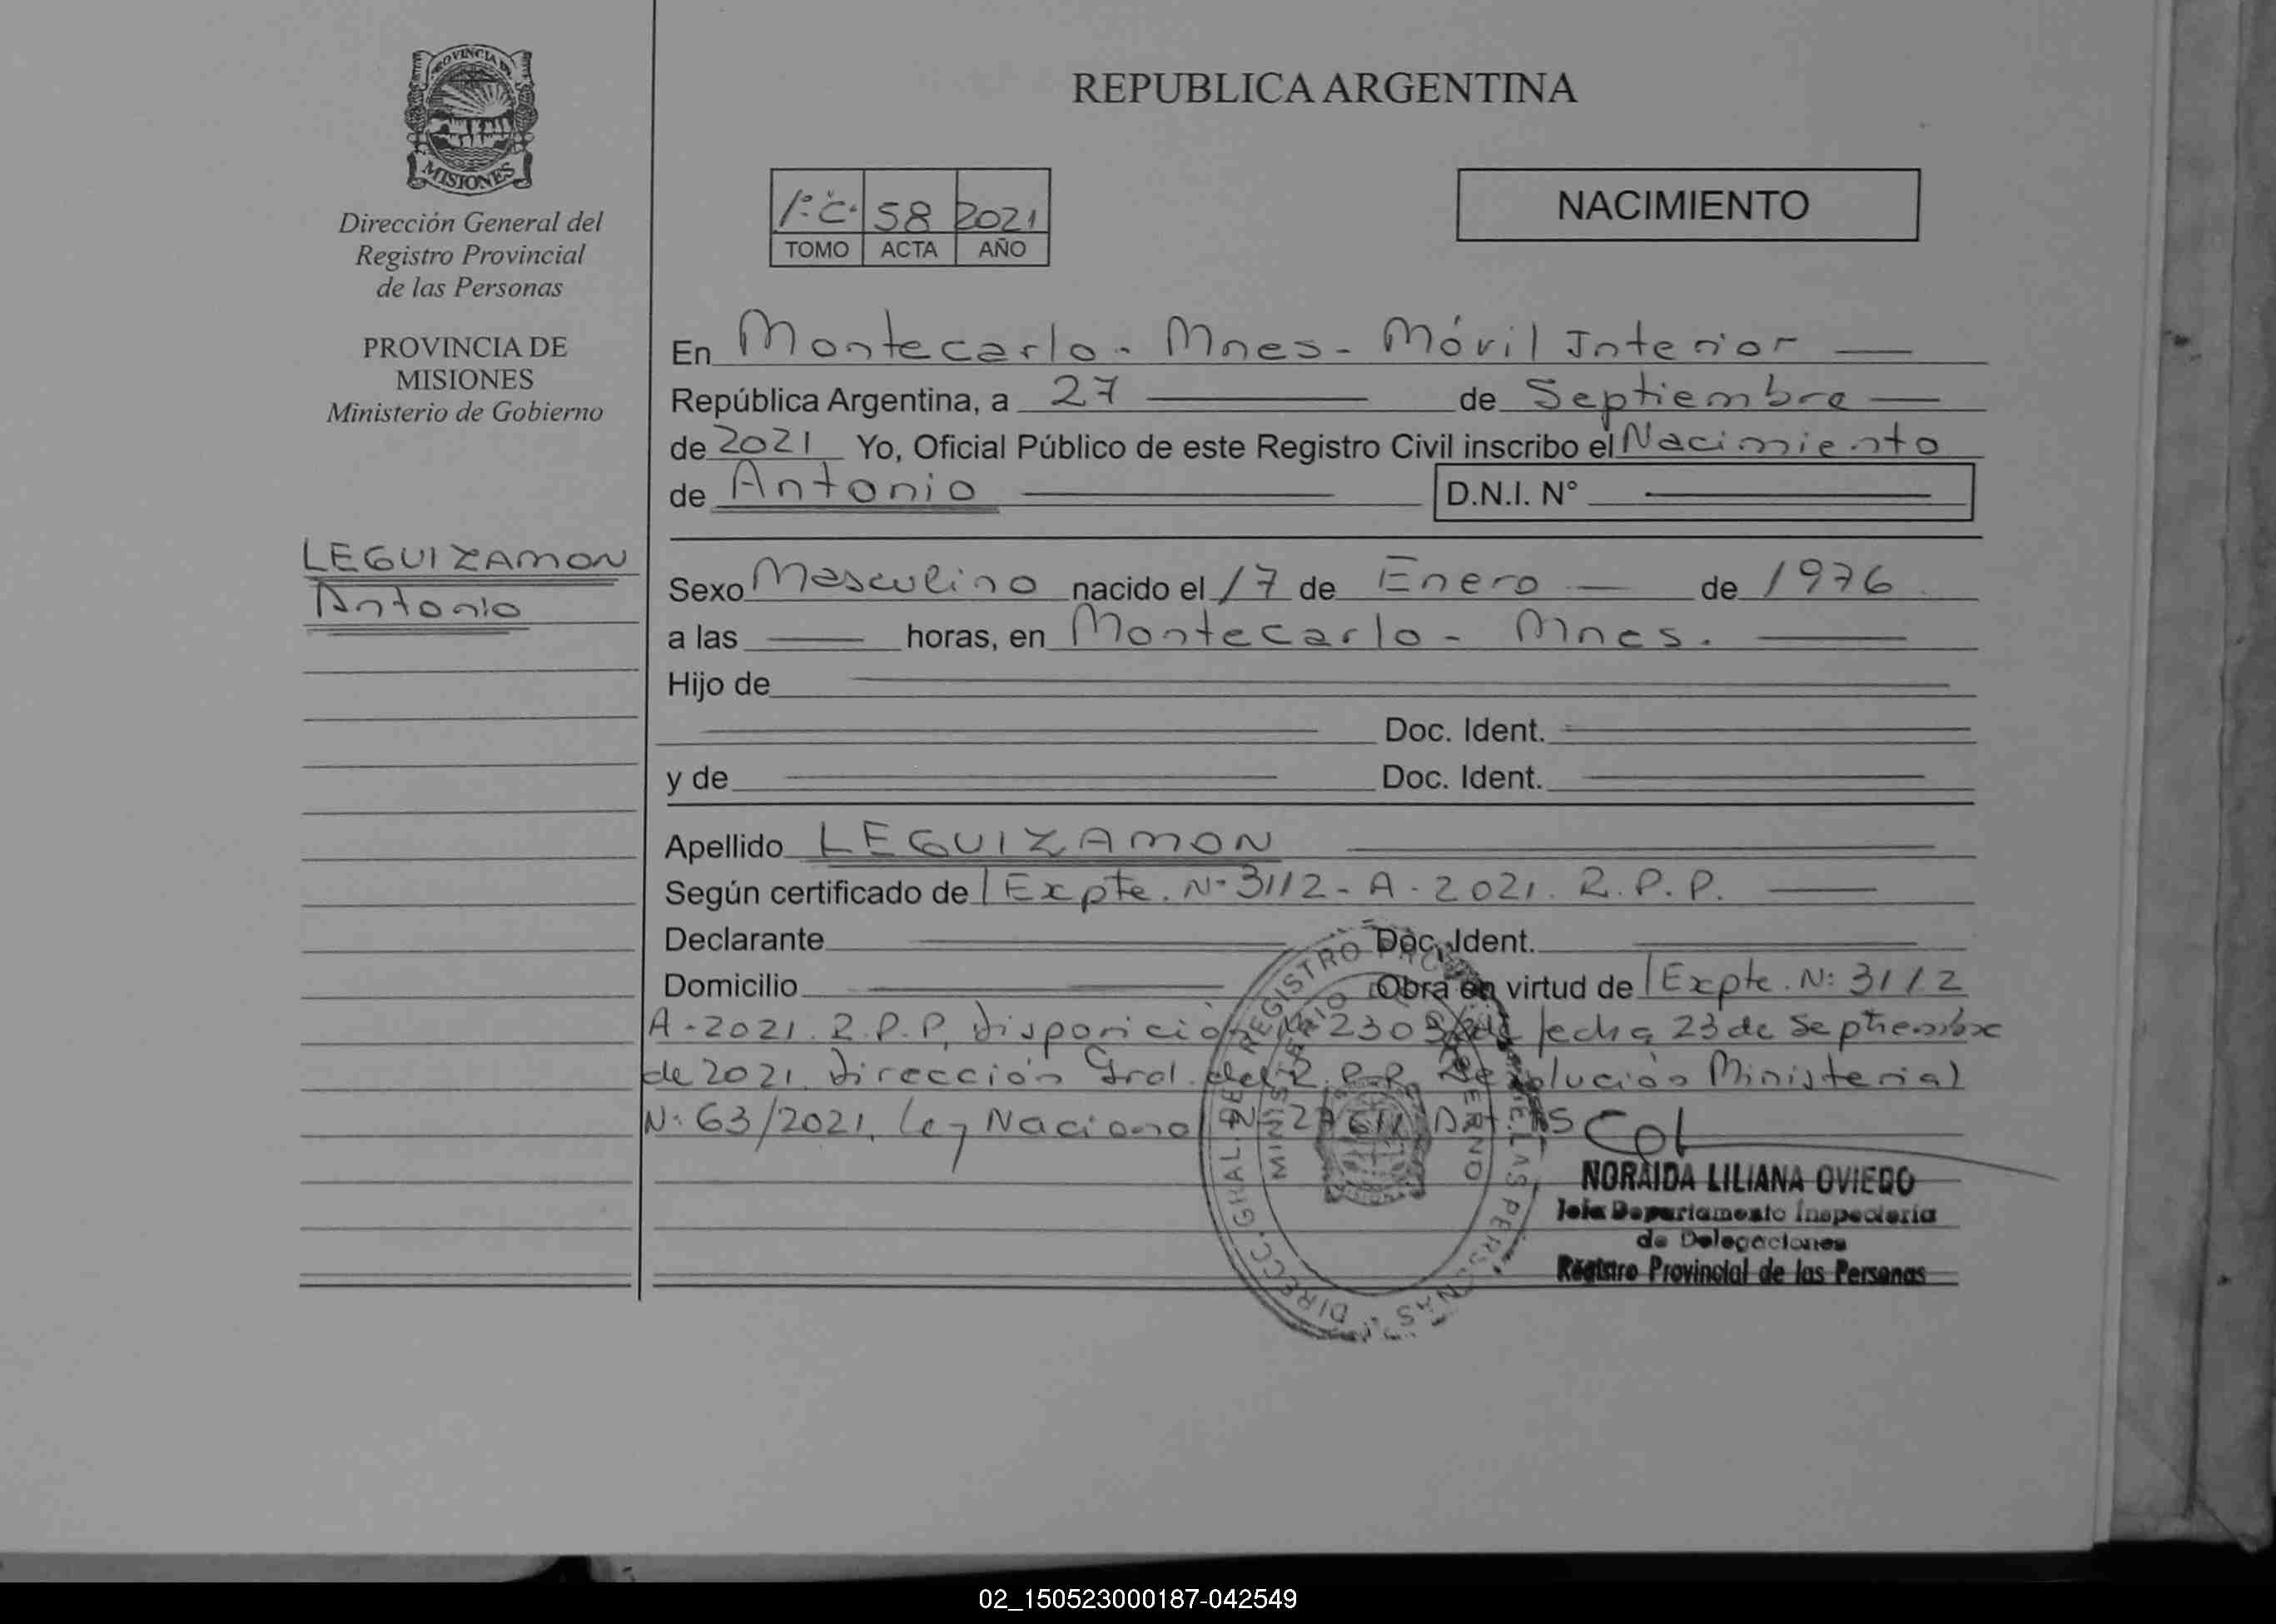 PROVINCIA DE
MISIONES
Dirección General del
Registro Provincial
de las Personas
PROVINCIA DE
MISIONES
Ministerio de Gobierno
LEGUIZAMON
Antonio
REPUBLICA ARGENTINA
58 2021
TOMO ACTA AÑO
NACIMIENTO
En Montecarlo - Mnes - Móvil Interior
República Argentina, a 27 de Septiembre
de 2021 Yo, Oficial Público de este Registro Civil inscribo el Nacimiento
de Antonio D.N.I. N°
Sexo Masculino nacido el 17 de Enero de 1976
a las horas, en Montecarlo - Mnes.
Hijo de
Doc. Ident.
y de Doc. Ident.
Apellido LEGUIZAMON
Según certificado de Expte. N° 3112 - A - 2021. R.P.P.
Declarante Doc. Ident.
Domicilio Obra en virtud de Expte. N: 3112
A - 2021. R.P.P, Disposición fecha 23 de Septiembre
de 2021. Dirección Gral. del R.P.P. Resolución Ministerial
N: 63/2021, Ley Nacional
DIRECC. GRAL. DEL REGISTRO DE LAS PERSONAS
MINISTERIO GOBIERNO
NORAIDA LILIANA OVIEDO
Jefa Departamento Inspectoría
de Delegaciones
Registro Provincial de las Personas
02_150523000187-042549